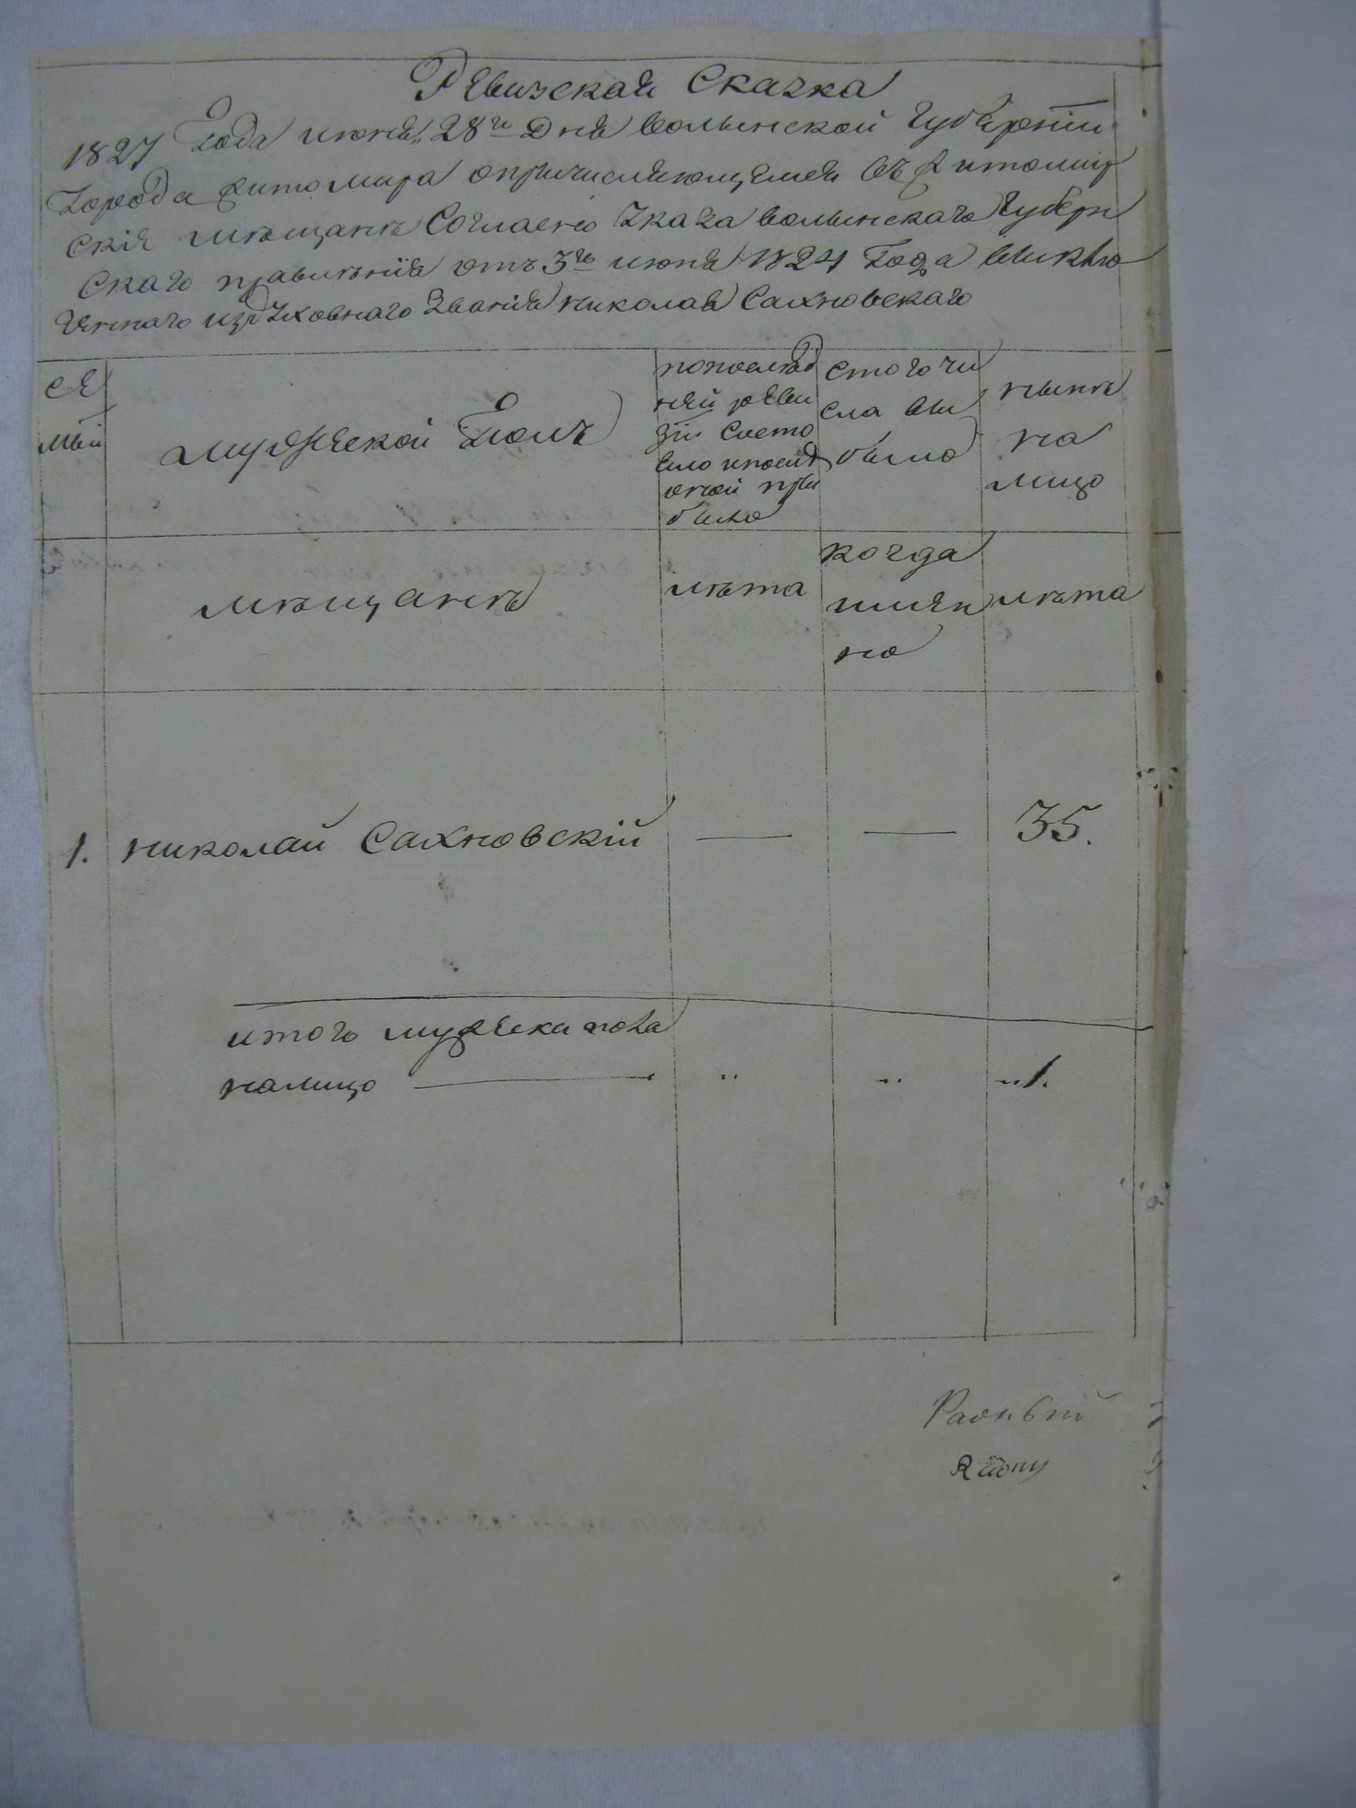 Ревизская Сказка
1827 Года июня 28го Дня волынской Губернiи
Города Житомира о причисляющемся въ Житомир
скiя мѣщане Согласно Указа волынскаго Губерн
скаго правленiя отъ 3го июня 1824 Года выключ
еннаго изъ Духовнаго Званiя николая Сахновскаго
се
мьи
мужеской полъ
попослѣд
ней реви
зiи Состо
яло ипослѣ
оной при
было
стого чи
сла вы
было
нынѣ
на
лицо
мѣщане
лѣта
когда
имян
но
лѣта
1. николай Сахновскiй — — 35.
итого мужеска пола
налицо — „ „ „1.